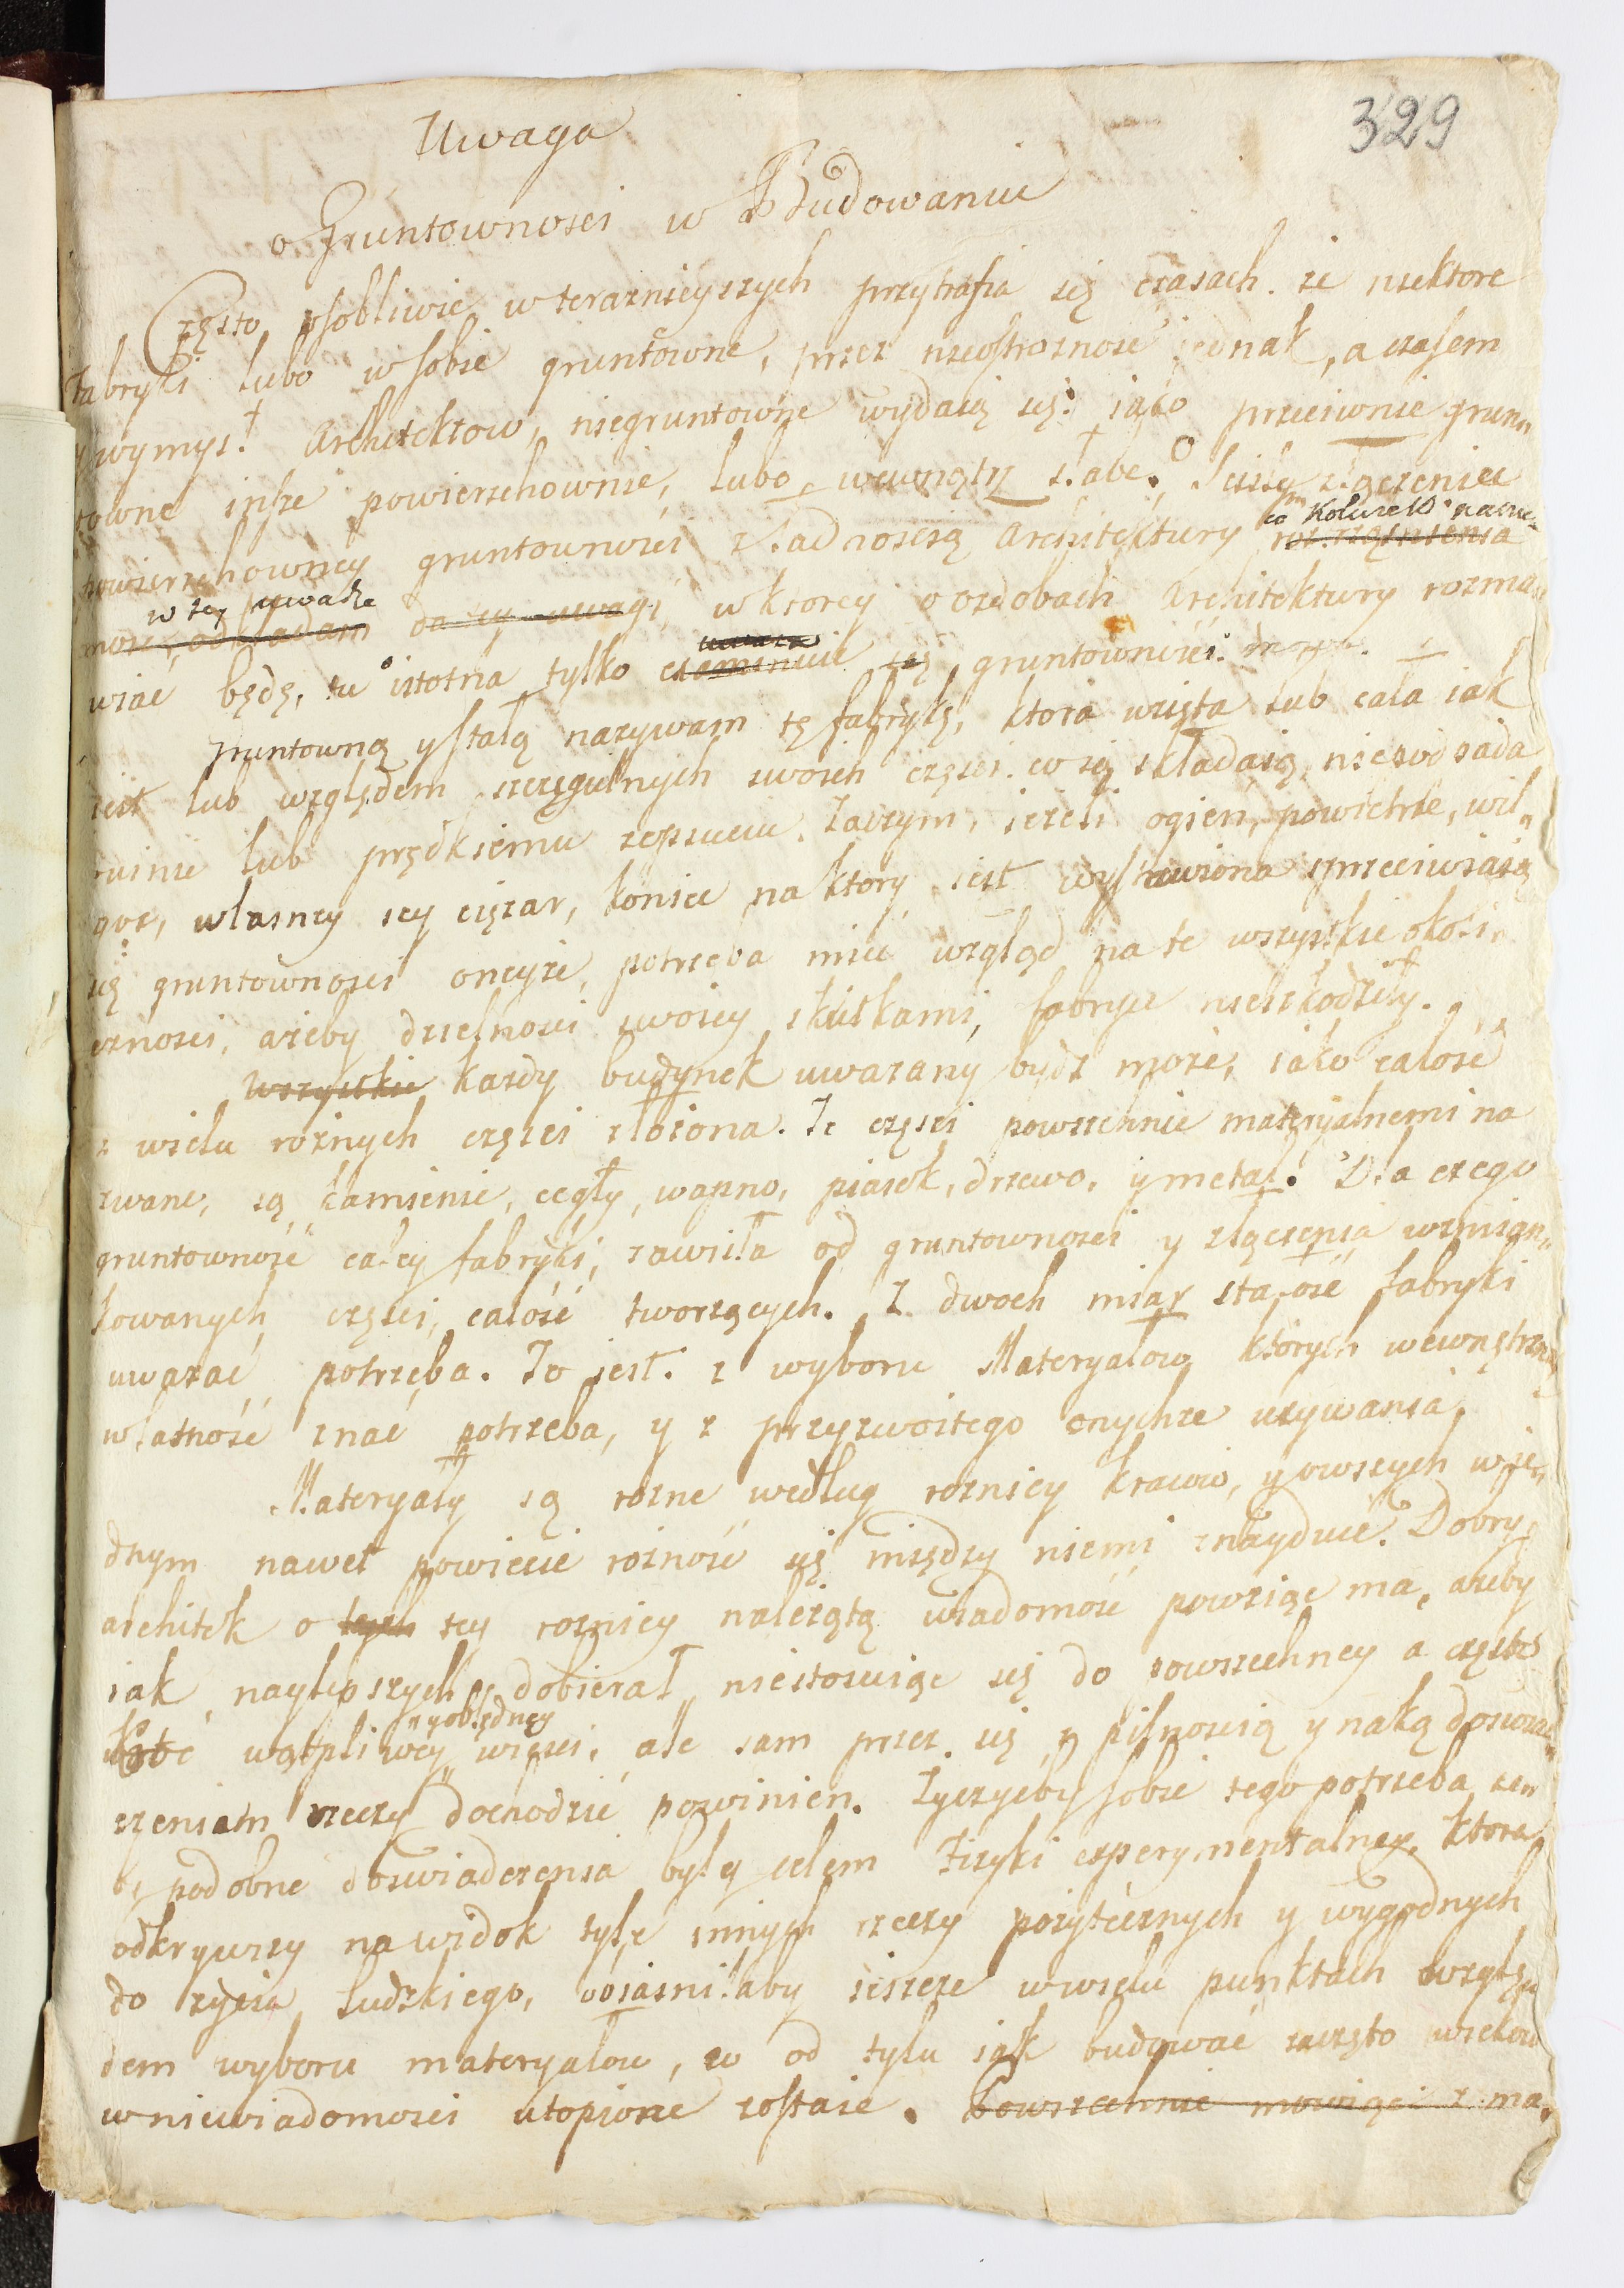 329
Uwaga
o Gruntownosci w Budowaniu
Często osobliwie w teraznieyszych przytrafia się czasach. że niektore
fabryki lubo w sobie gruntowne, przez nieostrożność jednak, a czasem
y wymysł Architektow, niegruntowne wydaią się: iako przeciwnie grun„
towne insze powierzchownie, lubo wewnątrz słabe. Scisłe złączenie
powierzchowney gruntownosci z ładnoscią Architektury
w tey uwadze
wktorey o ozdobach Architektury rozma„
wiać będę, tu istotna tylko gruntownosci.
Gruntowną y stałą nazywam tę fabrykę, ktora wzięta lub cała iak
iest lub względem szczegulnych swoich częsci. co ią składaią, niepodpada
ruinie lub prędkiemu zepsuciu. Zaczym, ieżeli ogień, powietrze, wil„
goć, własney iey ciężar, koniec na ktory iest wystawiona sprzeciwiaią
się gruntownosci oneyże, potrzeba mieć wzgląd na te wszystkie okoli„
cznosci, ażeby dzielnosci swoiey skutkami, fabryce nieszkodziły.
wszystkie każdy budynek uwazany bydz może, iako całość
z wielu rożnych częsci złożona. Te częsci powszechnie materyalnemi na
zwane, są kamienie, cegły, wapno, piasek, drzewo, y metal. Dla czego
gruntowność całey fabryki, zawisła od gruntownosci y złączenia wzmian„
kowanych częsci, całość tworzących. Z dwoch miar stałość fabryki
uwazać potrzeba. To iest. z wyboru Materyałow, ktorych wewnętrzną
własność znać potrzeba, y z przyzwoitego onychże używania.
Materyały są rozne według roznicy kraiow, y owszych w ie„
dnym nawet powiecie rożność się między niemi znayduie. Dobry
architek o tych tey roznicy należytą wiadomość powziąć ma, ażeby
iak naylepszych dobierał, niestosuiąc się do powszechney a często
wątpliwey y obłędney wiesci, ale sam przez się z pilnoscią y nauką doswiad„
czeniam rzeczy dochodzić powinien. Życzyćby sobie tego potrzeba że„
by podobne doswiadczenia były celem Fizyki experymentalney, ktora
odkrywszy na widok tyle innych rzeczy pożytecznych y wygodnych
do życia ludzkiego, obiasniłaby ieszcze w wielu punktach wzglę„
dem wyboru materyałow, co od tylu iak budować zaczęto wiekow
w niewiadomosci utopione zostaie. Powszechnie mowiąc z ma„